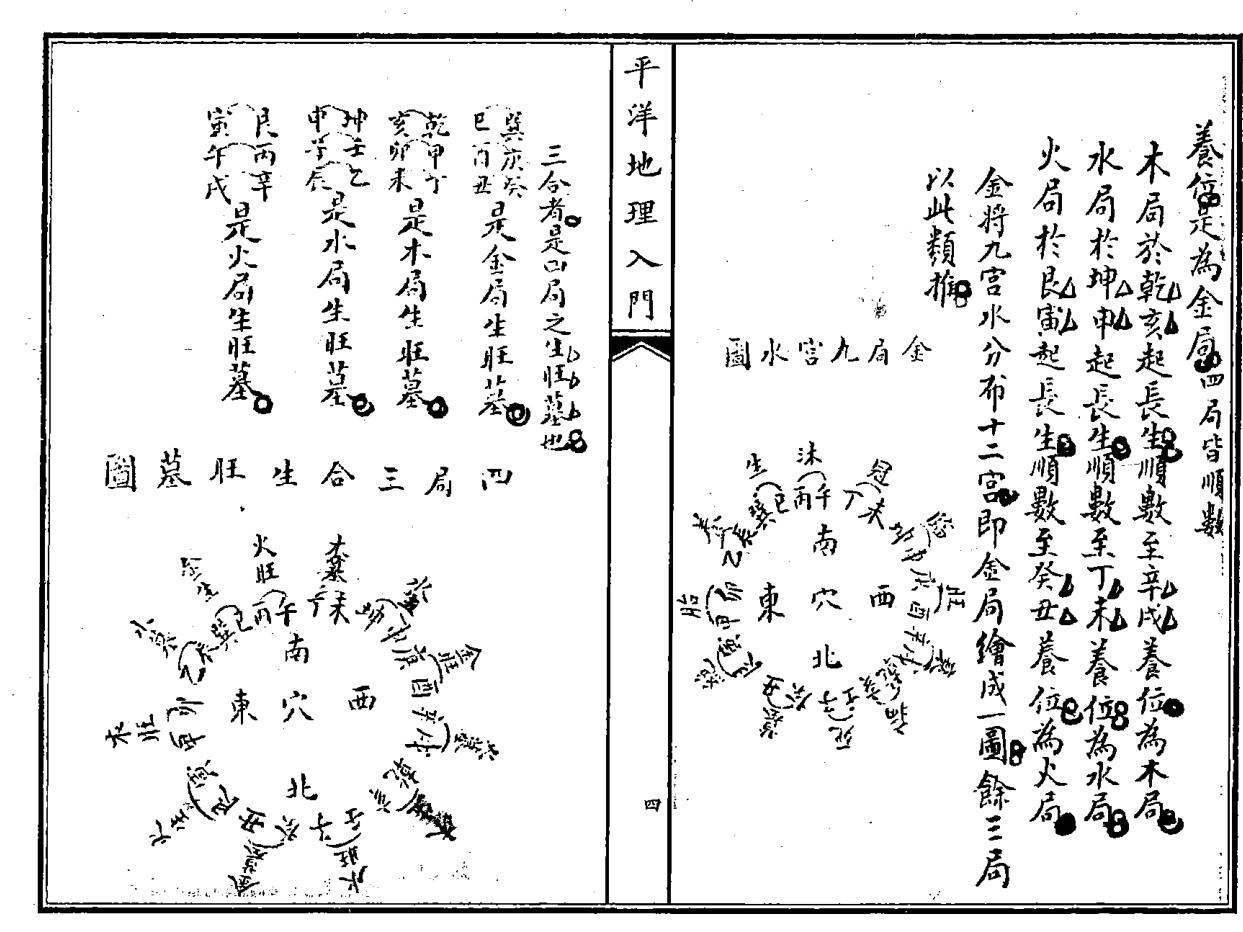 養位是為金局四局皆順數
木局於乾亥起長生順數至辛戌養位為木局
水局於坤申起長生順數至丁未養位為水局
火局於艮寅起長生順數至癸丑養位為火局
金將九宮水分布十二宮即金局繪成一圖餘三局
以此類推
金局九宮水圖
生 沐 冠
巽巳 丙午 丁未
南
東 穴 西
北
胎 旺
平洋地理入門
四
三合者是四局之生旺墓也
巽庚癸
巳酉丑
是金局生旺墓
乾甲丁
亥卯未
是木局生旺墓
坤壬乙
申子辰
是水局生旺墓
艮丙辛
寅午戌
是火局生旺墓
四局三合生旺墓圖
金生 火旺 木墓
巽巳 丙午 丁未
南
東 穴 西
北
木旺 金旺
水旺